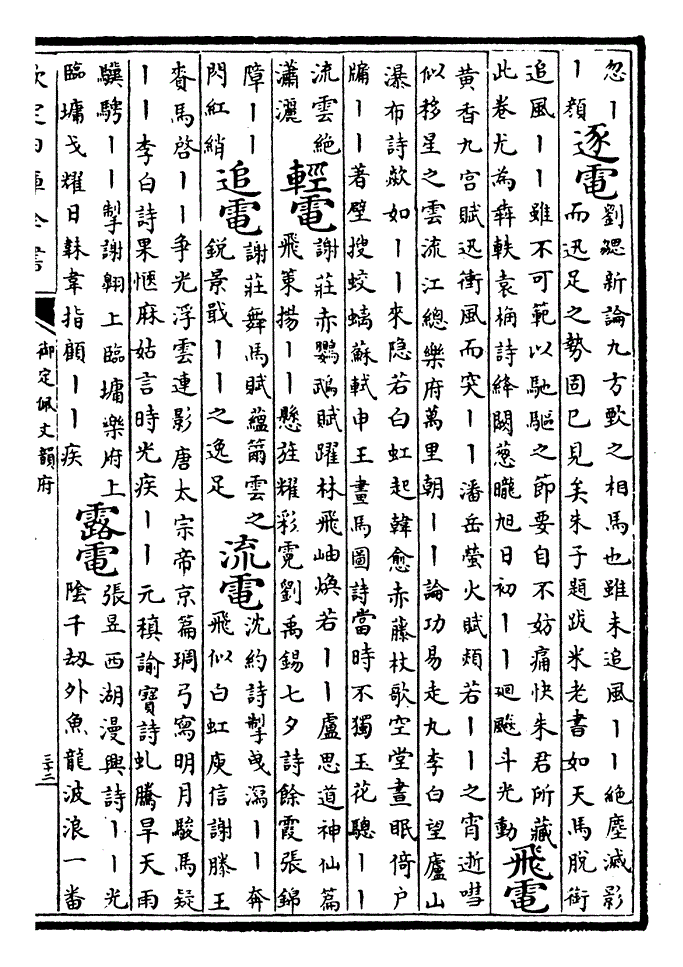 忽｜
｜顔
逐電
劉勰新論九方歅之相馬也雖未追風｜｜絶塵滅影
而迅足之勢固已見矣朱子題跋米老書如天馬脱銜
追風｜｜雖不可範以馳驅之節要自不妨痛快朱君所藏
此卷尤為犇軼袁桷詩絳闕葱曨旭日初｜｜廻飈斗光動
飛電
黄香九宫賦迅衝風而突｜｜潘岳螢火賦頰若｜｜之宵逝嘒
似移星之雲流江總樂府萬里朝｜｜論功易走丸李白望廬山
瀑布詩歘如｜｜來隐若白虹起韓愈赤藤杖歌空堂晝眠倚户
牖｜｜著壁搜蛟螭蘇軾申王畫馬圖詩當時不獨玉花驄｜｜
流雲絶
瀟灑
輕電
謝莊赤鸚鵡賦躍林飛岫煥若｜｜盧思道神仙篇
飛策揚｜｜懸旌耀彩霓劉禹錫七夕詩餘霞張錦
障｜｜
閃紅綃
追電
謝莊舞馬賦藴籋雲之
鋭景戢｜｜之逸足
流電
沈約詩掣曵瀉｜｜奔
飛似白虹庾信謝滕王
賚馬啓｜｜争光浮雲連影唐太宗帝京篇琱弓寫明月駿馬疑
｜｜李白詩果愜麻姑言時光疾｜｜元稹諭寶詩虬騰旱天雨
驥騁｜｜掣謝翺上臨墉樂府上
臨墉戈耀日韎韋指顧｜｜疾
露電
張昱西湖漫興詩｜｜光
陰千刼外魚龍波浪一番
欽定四庫全書
御定佩文韻府
三十二